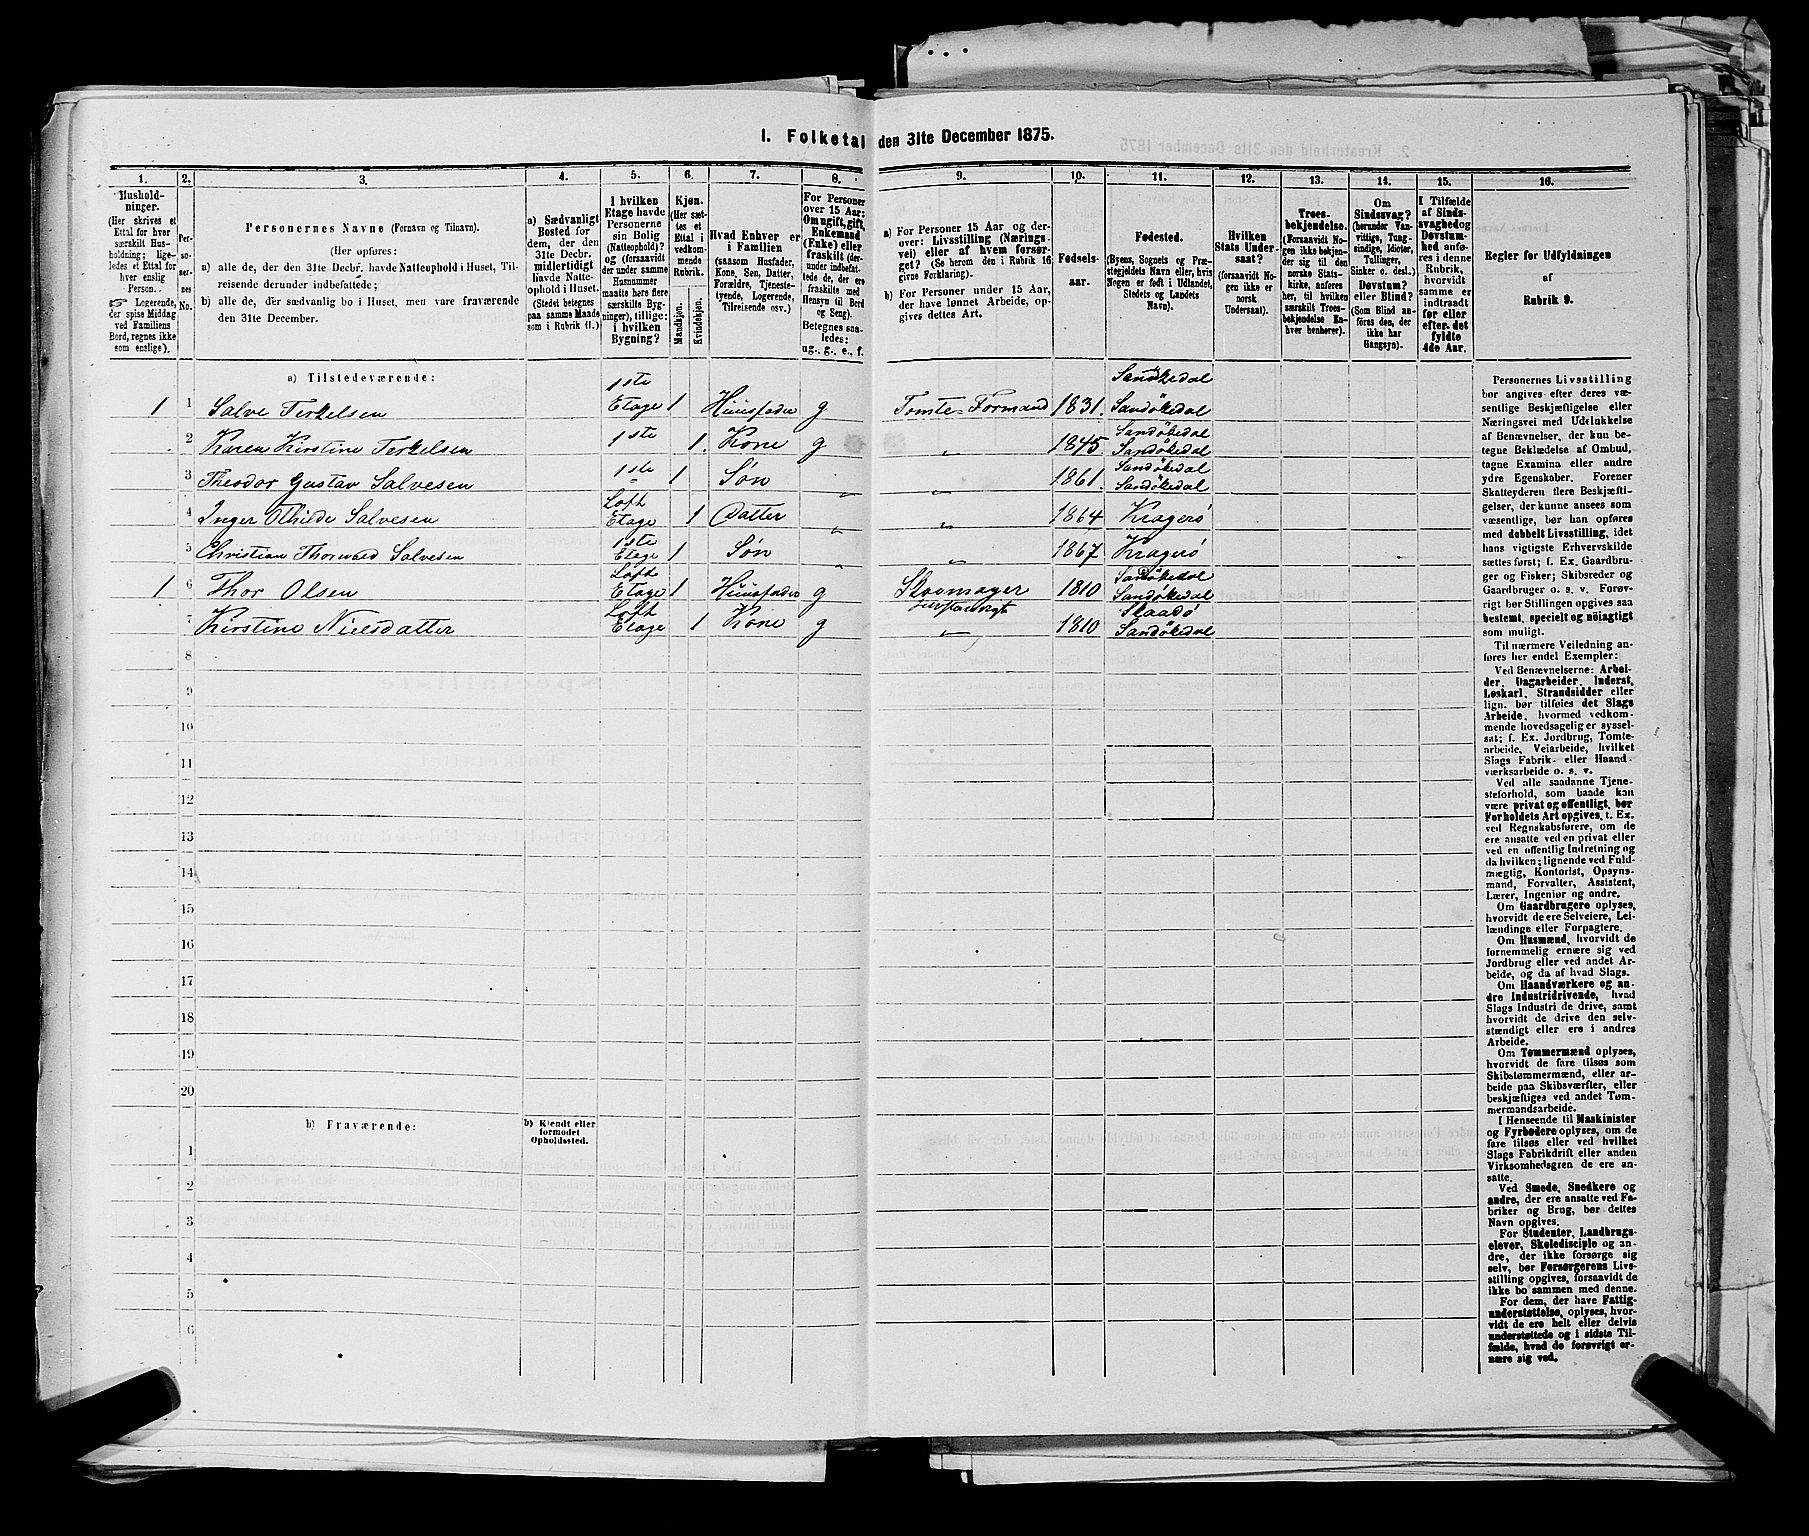 I. Folketal den 31te December 1875.
1. 2. 3. 4. 5. 6. 7. 8. 9. 10. 11. 12. 13. 14. 15. 16.
Hushold-
ninger.
(Her skrives et
Ettal for hver
særskilt Hus-
holdning; lige-
ledes et Ettal for
hver enslig
Person.
☞ Logerende,
der spise Middag
ved Familiens
Bord, regnes ikke
som enslige).
Per-
so-
ner-
nes
No.
Personernes Navne (Fornavn og Tilnavn).
(Her opføres:
a) alle de, der den 31te Decbr. havde Natteophold i Huset, Til-
reisende derunder indbefattede;
b) alle de, der sædvanlig bo i Huset, men vare fraværende
den 31te December.
a) Sædvanligt
Bosted for
dem, der den
31te Decbr.
midlertidigt
havde Natte-
ophold i Huset.
(Stedet betegnes
paa samme Maade
som i Rubrik 11.)
I hvilken
Etage havde
Personerne
sin Bolig
(Natteophold)?
og (forsaavidt
der under samme
Husnummer
maatte høre flere
særskilte Byg-
ninger), tillige:
i hvilken
Bygning?
Kjøn.
(Her sæt-
tes et
Ettal i
vedkom-
mende
Rubrik.
Mandkjøn.
Kvindekjøn.
Hvad Enhver er
i Familien
(saasom Husfader,
Kone, Søn, Datter,
Forældre, Tjeneste-
tyende, Logerende,
Tilreisende osv.)
For Personer
over 15 Aar:
Om ugift, gift,
Enkemand
(Enke) eller
fraskilt (der-
under indbefat-
tede de, der
ere fraskilte med
Hensyn til Bord
og Seng).
Betegnes saa-
ledes:
ug., g., e., f.
a) For Personer 15 Aar og der-
over: Livsstilling (Nærings-
vei) eller af hvem forsør-
get? (Se herom den i Rubrik 16
givne Forklaring).
b) For Personer under 15 Aar,
der have lønnet Arbeide, op-
gives dettes Art.
Fødsels-
aar.
Fødested.
(Byens, Sognets og Præ-
stegjeldets Navn eller, hvis
Nogen er født i Udlandet,
Stedets og Landets
Navn).
Hvilken
Stats Under-
saat?
(forsaavidt No-
gen ikke er
norsk
Undersaat).
Troes-
bekjendelse.
(Forsaavidt No-
gen ikke bekjen-
der sig til den
norske Stats-
kirke, anføres
her, til hvilken
særskilt Troes-
bekjendelse En-
hver henhører).
Om
Sindssvag?
(herunder Van-
vittige, Tung-
sindige, Idioter,
Tullinger,
Sinker o. desl.)
Døvstum?
eller Blind?
(Som Blind an-
føres den, der
ikke har
Gangsyn).
I Tilfælde
af Sinds-
svaghed og
Døvstum-
hed anfø-
res i denne
Rubrik,
hvorvidt
samme er
indtraadt
før eller
efter det
fyldte
4de Aar.
Regler for Udfyldningen
af
Rubrik 9.
a) Tilstedeværende:
1 1 Salve Terkelsen 1ste Etage 1 Huusfader g Tomte-Formand 1831. Sandøkedal Sandøkedal
2 Karen Kirstine Terkelsen 1ste 1. Kone g „ 1845 Sandøkedal Sandøkedal
3 Theodor Gustav Salvesen 1ste „ 1 Søn „ „ 1861. Sandøkedal Sandøkedal
4 Inger Othilde Salvesen Loft Etage 1 Datter „ „ 1864 Kragerö
5 Christian Thorwald Salvesen 1ste Etage 1 Søn „ „ 1867. Kragerö
1 6 Thor Olsen Loft Etage 1 Huusfader g Skomager 1810 Sandøkedal Sandøkedal
7 Kirstine Nielsdatter Loft Etage 1 Kone g „ 1810 Skaadö Sandøkedal
8
9
10
11
12
13
14
15
16
17
18
19
20
b) Fraværende:
b) Kjendt eller
formodet
Opholdssted.
1
2
3
4
5
6
Personernes Livsstilling
bør angives efter deres væ-
sentlige Beskjæftigelse eller
Næringsvei med Udelukkelse
af Benævnelser, der kun be-
tegne Beklædelse af Ombud,
tagne Examina eller andre
ydre Egenskaber. Forener
Skatteyderen flere Beskjæfti-
gelser, der kunne ansees som
væsentlige, bør han opføres
med dobbelt Livsstilling, idet
hans vigtigste Erhvervskilde
sættes først; f. Ex. Gaardbru-
ger og Fisker; Skibsreder og
Gaardbruger o. s. v. Forøv-
rigt bør Stillingen opgives saa
bestemt, specielt og nöiagtigt
som muligt.
Til nærmere Veiledning an-
føres her endel Exempler:
Ved Benævnelserne: Arbei-
der, Dagarbeider, Inderst,
Løskarl, Strandsidder eller
lign. bør tilføies det Slags
Arbeide, hvormed vedkom-
mende hovedsagelig er syssel-
sat; f. Ex. Jordbrug, Tomte-
arbeide, Veiarbeide, hvilket
Slags Fabrik- eller Haand-
værksarbeide o. s. v.
Ved alle saadanne Tjene-
steforhold, som baade kan
være privat og offentligt, bør
Forholdets Art opgives. t. Ex.
ved Regnskabsførere, om de
ere ansatte ved en privat eller
ved en offentlig Indretning og
da hvilken; lignende ved Fuld-
mægtig, Kontorist, Opsyns-
mand, Forvalter, Assistent,
Lærer, Ingeniør og andre.
Om Gaardbrugere oplyses,
hvorvidt de ere Selveiere, Lei-
lændinge eller Forpagtere.
Om Husmænd, hvorvidt de
fornemmelig ernære sig ved
Jordbrug eller ved andet Ar-
beide, og da af hvad Slags.
Om Haandværkere og an-
dre Industridrivende, hvad
Slags Industri de drive, samt
hvorvidt de drive den selv-
stændigt eller ere i andres
Arbeide.
Om Tømmermænd oplyses,
hvorvidt de fare tilsøs som
Skibstømmermænd, eller ar-
beide paa Skibsværfter, eller
beskjæftiges ved andet Tøm-
mermandsarbeide.
I Henseende til Maskinister
og Fyrbødere oplyses, om de
fare tilsøs eller ved hvilket
Slags Fabrikdrift eller anden
Virksomhedsgren de ere an-
satte.
Ved Smede, Snedkere og
andre, der ere ansatte ved Fa-
briker og Brug, bør dettes
Navn opgives.
For Studenter, Landbrugs-
elever, Skoledisciple og an-
dre, der ikke forsørge sig
selv, bør Forsørgerens Livs-
stilling opgives, forsaavidt de
ikke bo sammen med denne.
For dem, der have Fattig-
understøttelse, oplyses, hvor-
vidt de ere helt eller delvis
understøttede og i sidste Til-
fælde, hvad de forøvrigt er-
nære sig ved.